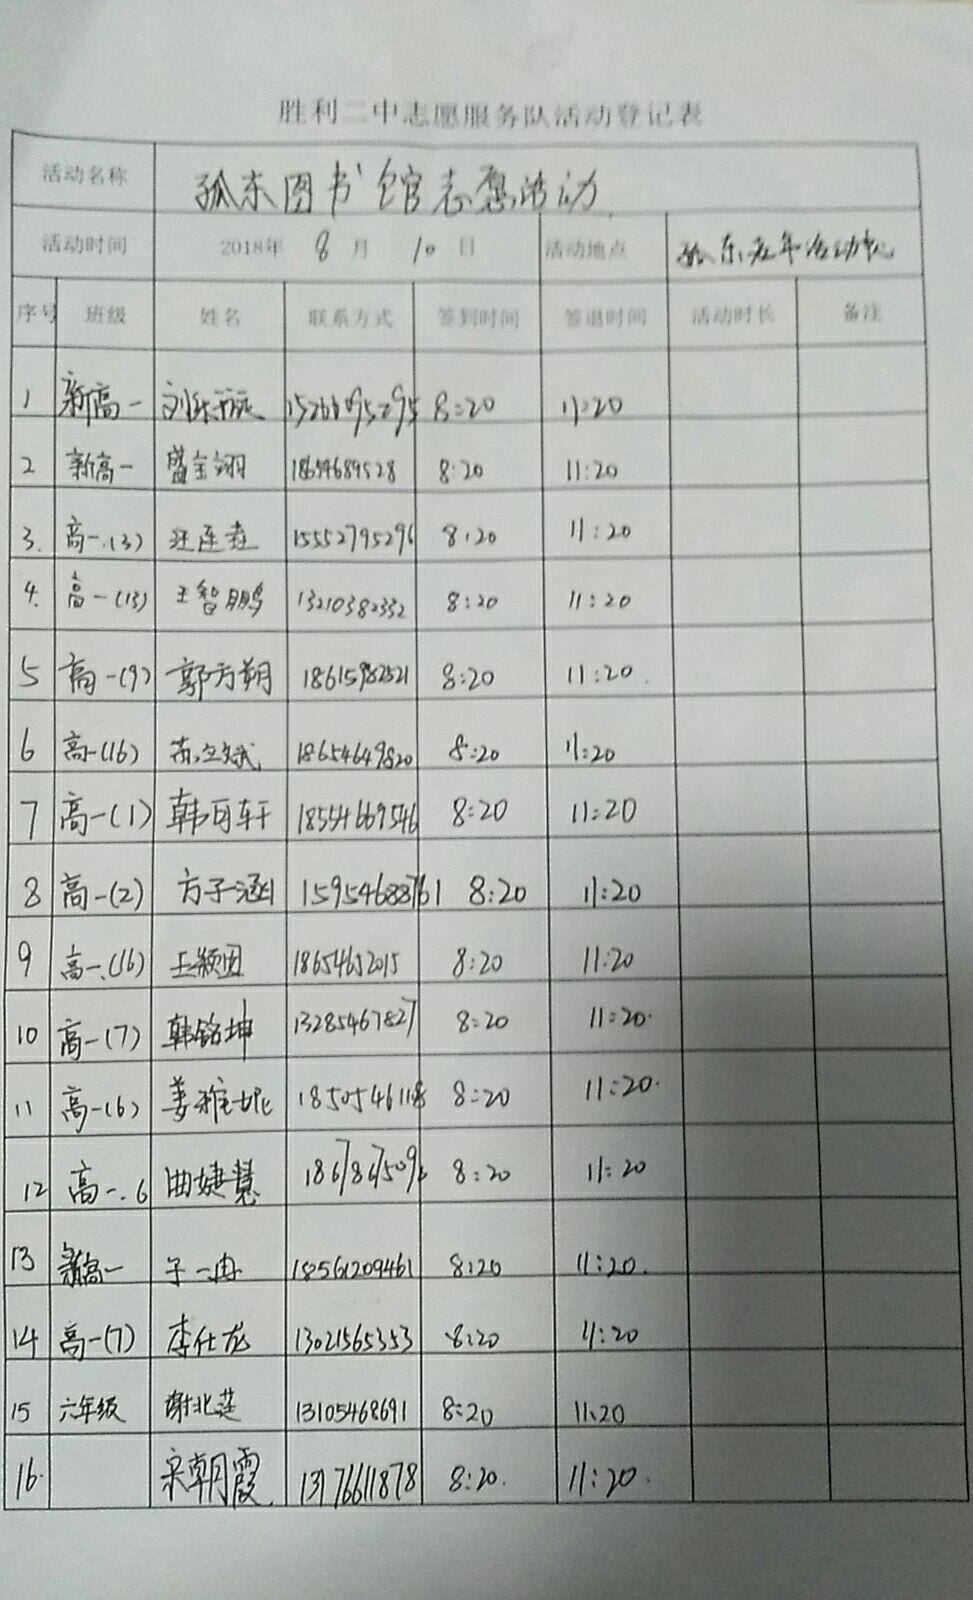 胜利二中志愿服务队活动登记表
活动名称 孤东图书馆志愿活动
活动时间 2018年 8 月 10 日 活动地点 孤东老年活动中心
序号 班级 姓名 联系方式 签到时间 签退时间 活动时长 备注
1 新高一 15266095295 8:20 11:20
2 新高一 盛宝翊 18654689528 8:20 11:20
3. 高一.(3) 汪连森 15552795296 8:20 11:20
4. 高一(13) 王智鹏 13210382332 8:20 11:20
5 高一(9) 郭方朔 18615982521 8:20 11:20.
6 高一(16) 苏文斌 18654649820 8:20 11:20
7 高一(1) 韩可轩 18554669546 8:20 11:20
8 高一(2) 方子涵 15954688761 8:20 11:20
9 高一.(16) 王颖 18654652015 8:20 11:20
10 高一(7) 韩铭坤 13285467827 8:20 11:20.
11 高一(6) 姜雅妮 18505461118 8:20 11:20.
12 高一.6 曲婕慧 18678675096 8:20 11:20
13 新高一 一冉 18561209461 8:20 11:20.
14 高一(7) 李仕龙 13021565353 8:20 11:20
15 六年级 谢北莲 13105468691 8:20 11:20
16. 宋朝霞. 13176611878 8:20. 11:20.